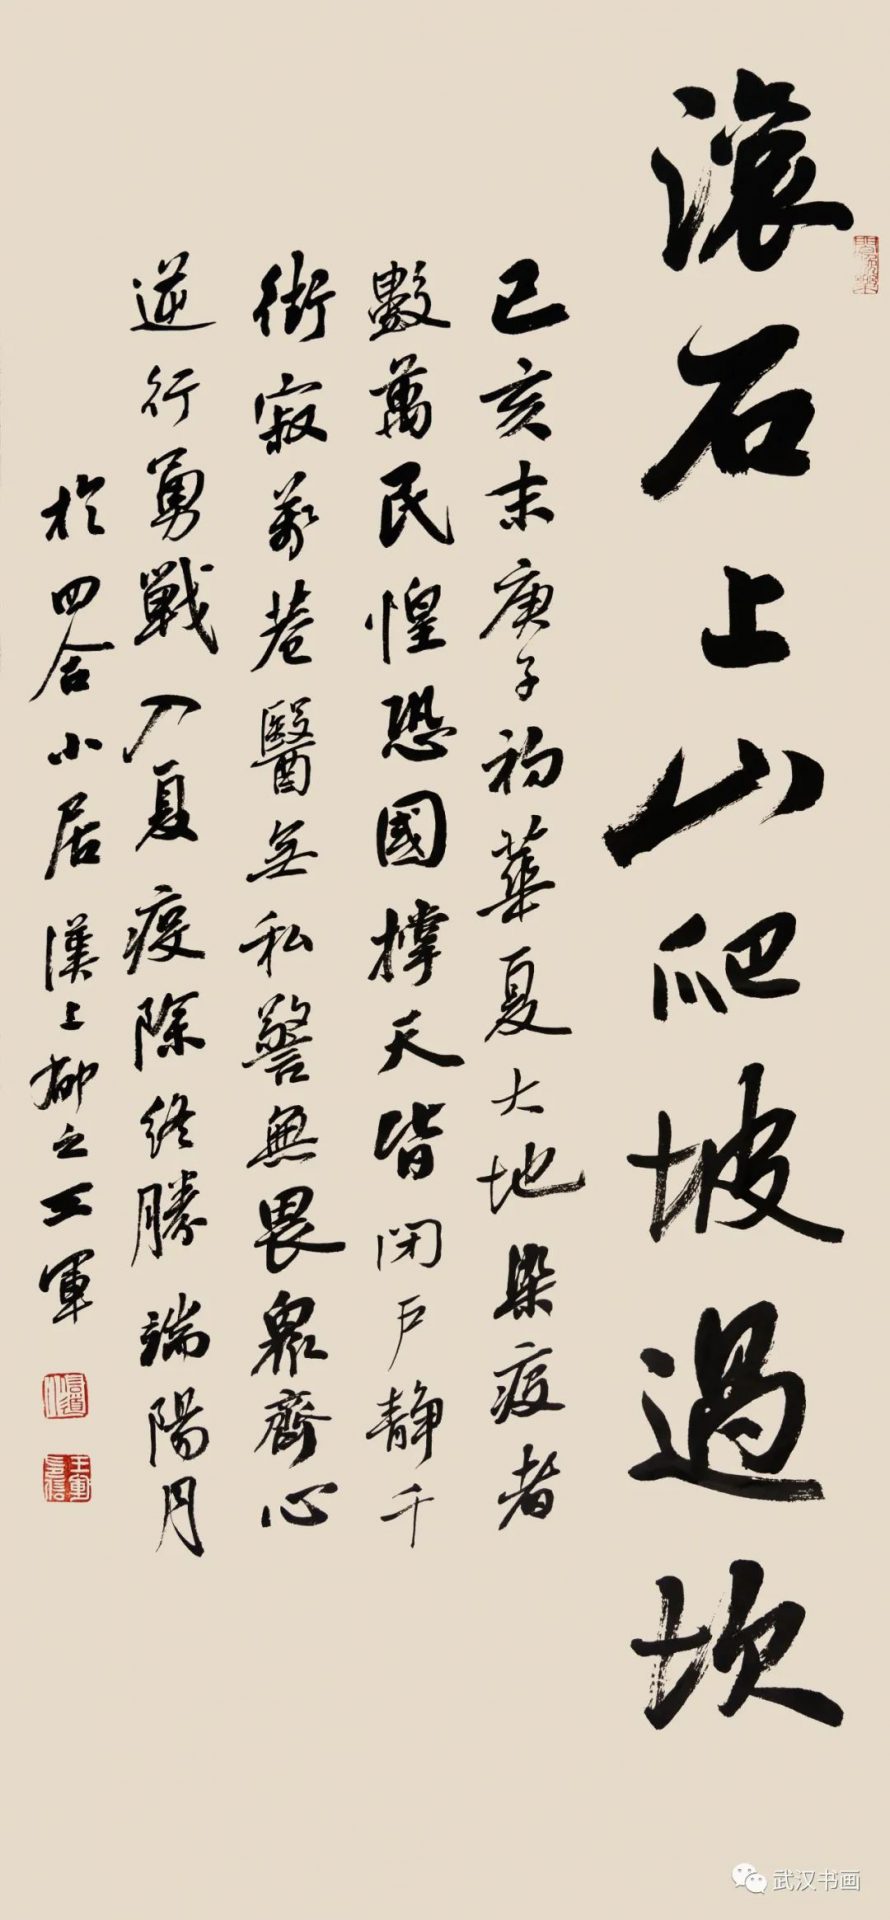 滾石上山爬坡過坎
己亥末庚子初華夏大地染疫者
數萬民惶恐國撑天皆閉户静千
街寂萬巷醫無私警無畏眾齊心
逆行勇戰入夏疫除终勝端陽月
於四合小居漢上柳之王軍
武汉书画